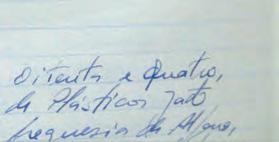 oitenta e quatro,
de Plásticos Jato
freguesia de Alfena,